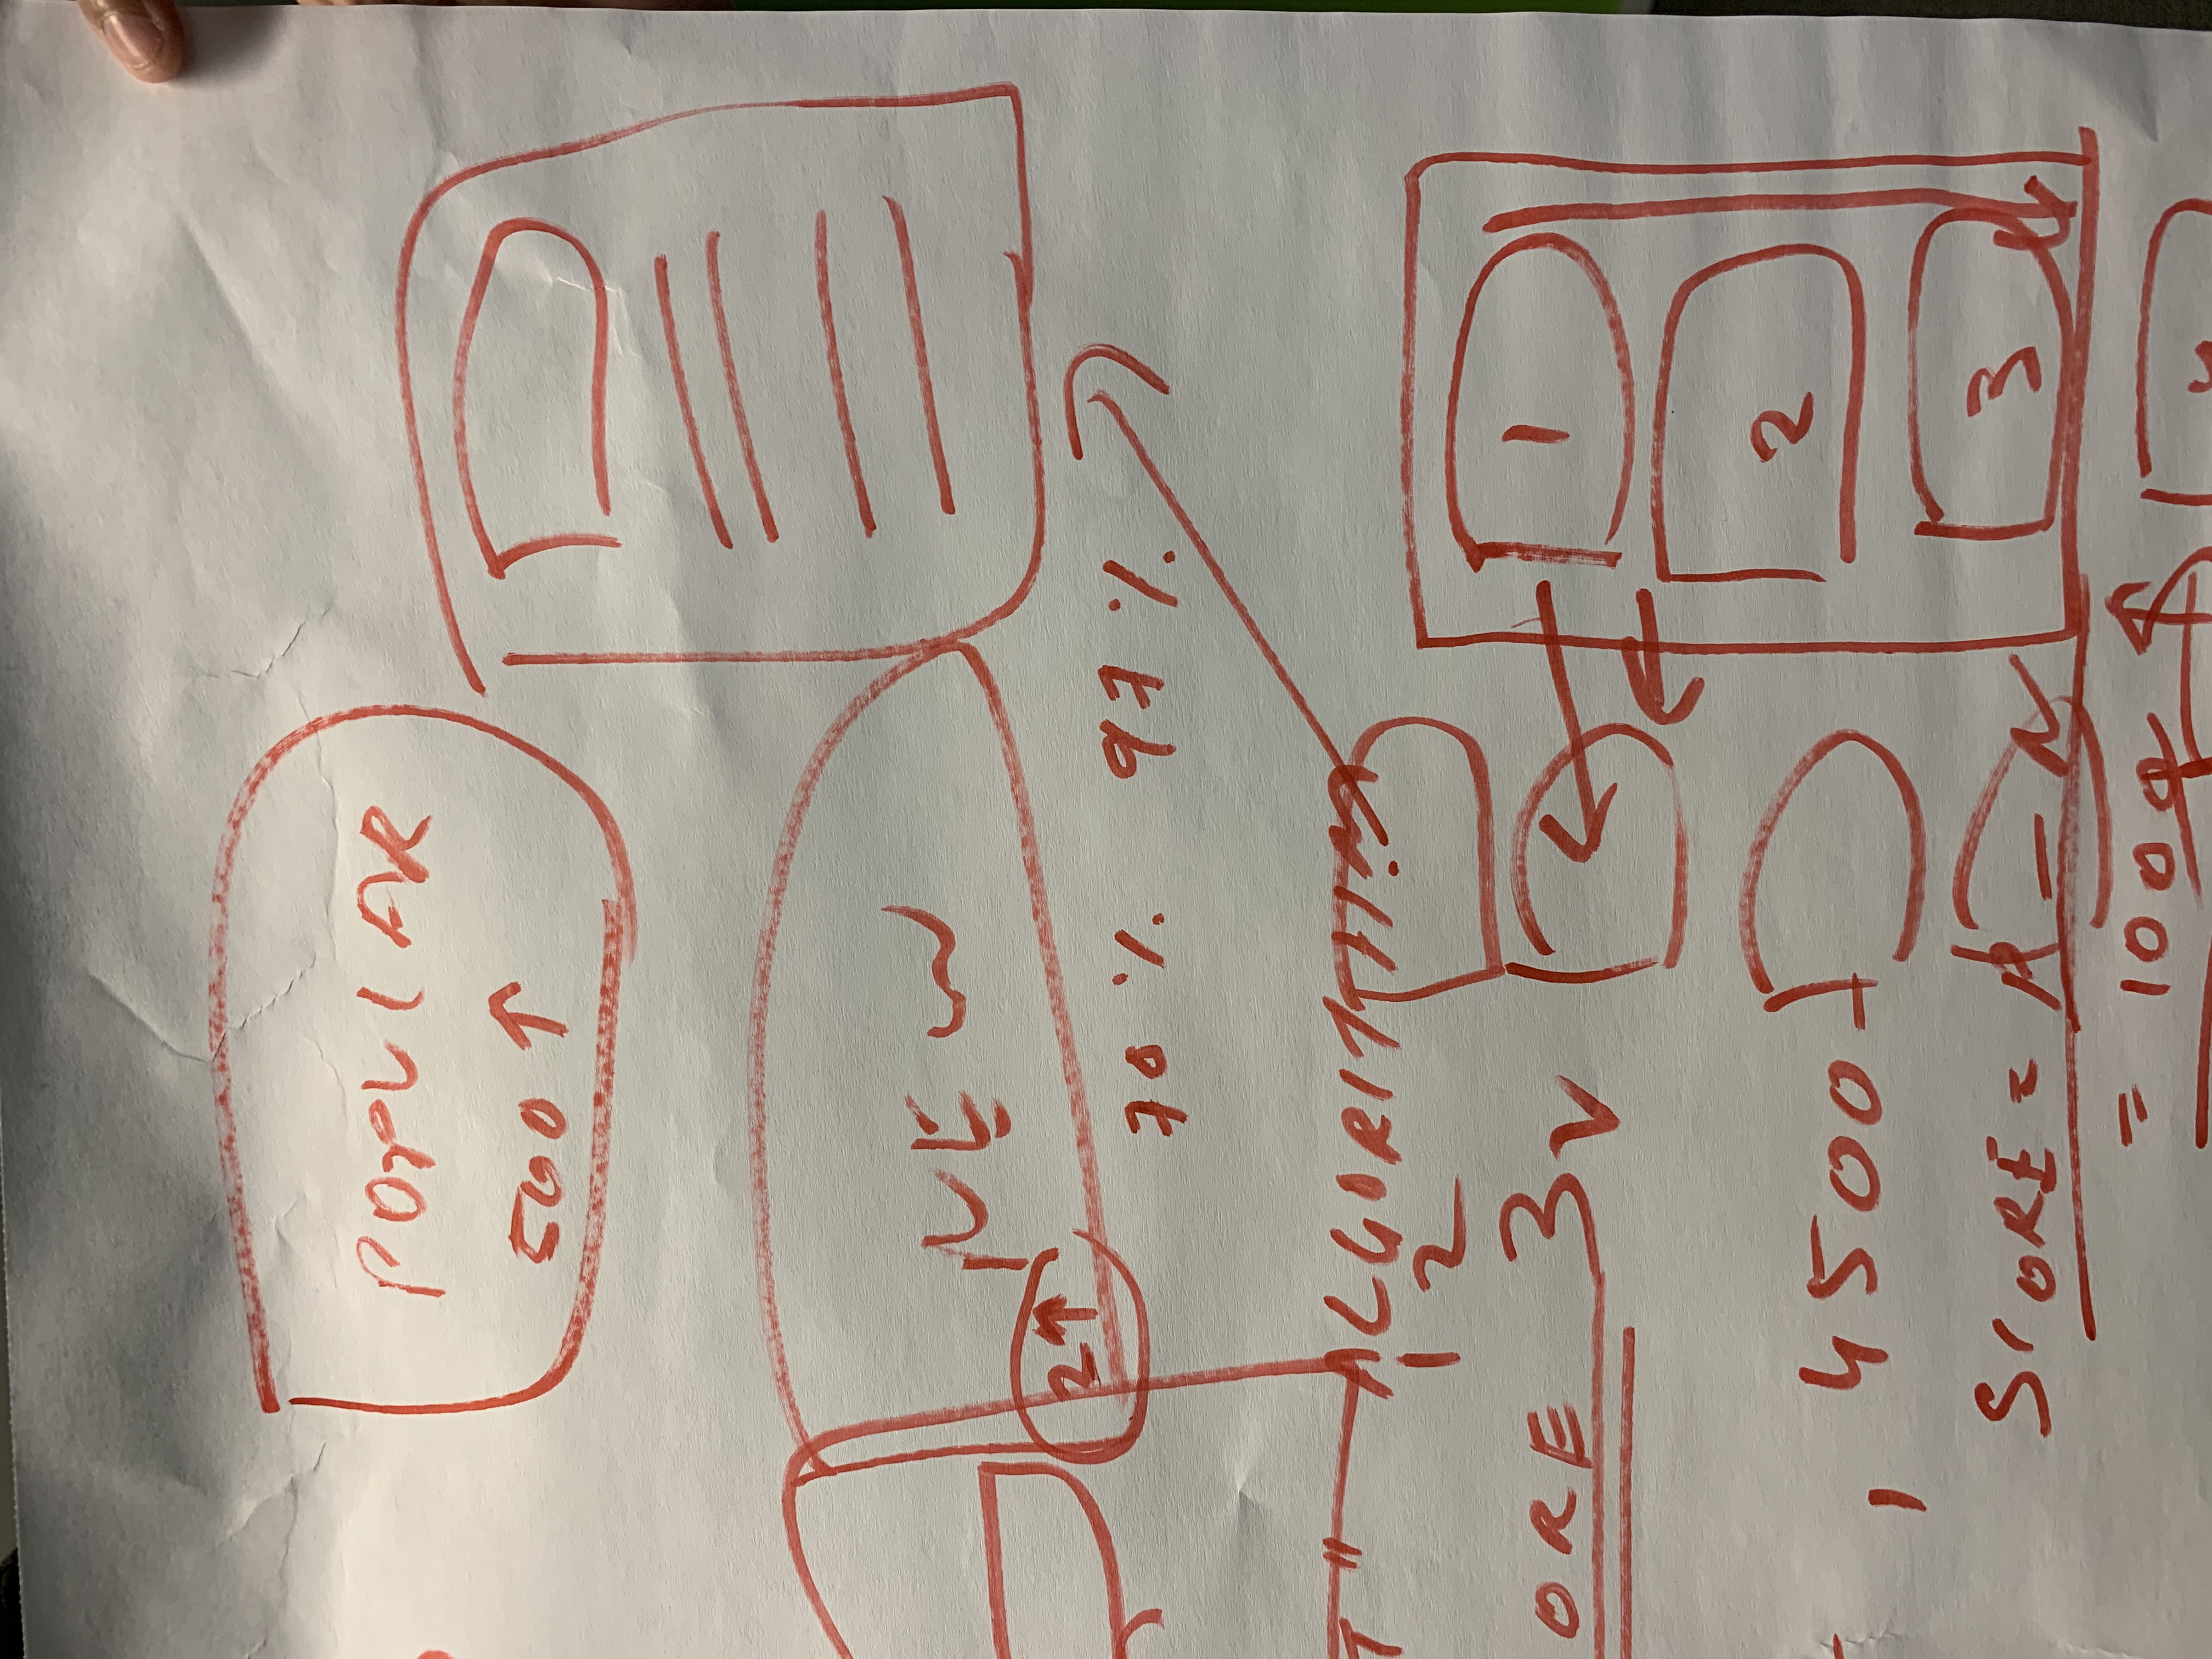 POPULAR
500↑
NEW
2↑
70% 97%
T" ALGORITHM
1 2
ORE 3
1
2
, 4500
3
SCORE = P - N
= 1000 ↑